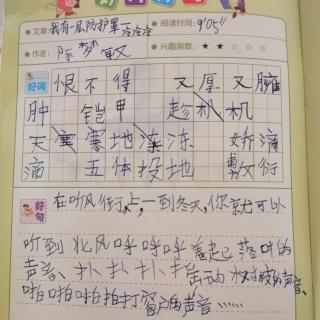 文章 我有一层防护罩 冷冷冷 阅读时间: 9'05"
作者: 陈梦敏 兴趣指数: ★★☆☆☆
好词 恨不得 又厚又臃
肿 铠甲 趁机 机
天寒地冻 娇滴
滴 五体投地 敷衍
好句 在听风街上,一到冬天,你就可以
听到北风呼呼呼卷起落叶的
声音、扑扑扑摇动树枝的声音、
啪啪啪拍打窗户的声音……